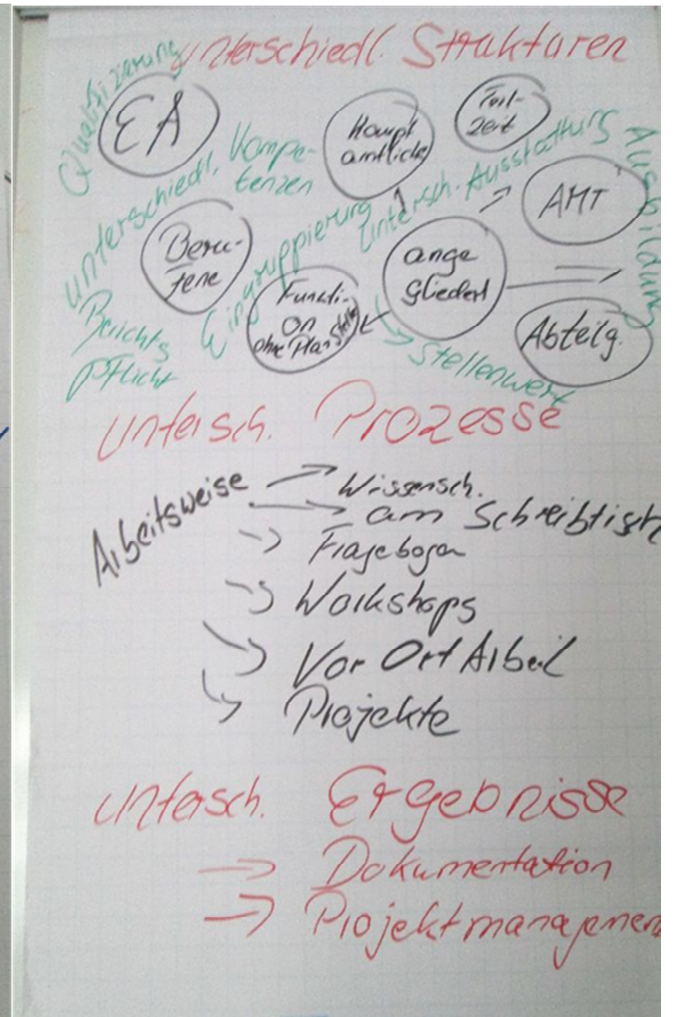 unterschiedl. Strukturen
Qualifizierung
EA
Haupt
amtliche
Teil-
zeit
unterschiedl. Kompe-
tenzen
Untersch. Ausstattung
Ausbildung
AMT
Beru-
fene
Eingruppierung
ange
gliedert
Functi-
on
ohne Planstelle
Berichts
pflicht
Stellenwert
Abteilg.
untersch. Prozesse
Arbeitsweise
Wissensch.
am Schreibtisch
Fragebogen
Workshops
Vor Ort Arbeit
Projekte
untersch. Ergebnisse
Dokumentation
Projektmanagemen